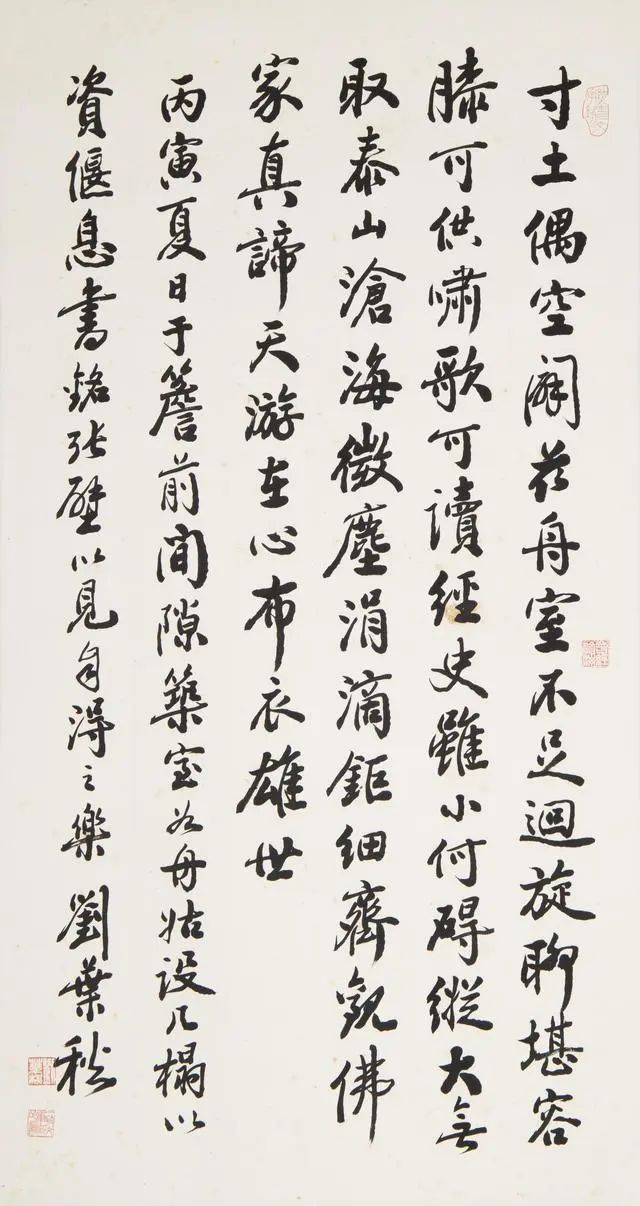 寸土偶空闲芥舟室不足迴旋聊堪容
膝可供啸歌可讀經史雖小何碍縱大無
取泰山滄海微塵涓滴鉅细齊觀佛
家真諦天游在心布衣雄世
丙寅夏日于簷前间隙築室如舟姑设几榻以
資偃息書銘张壁以見自得之樂 劉葉秋